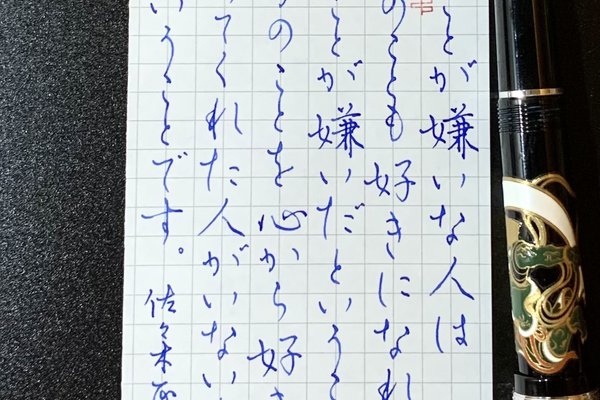 ことが嫌いな人は
のことも好きになれ
ことが嫌いだという
のことを心から好
てくれた人がいない
いうことです。佐々木